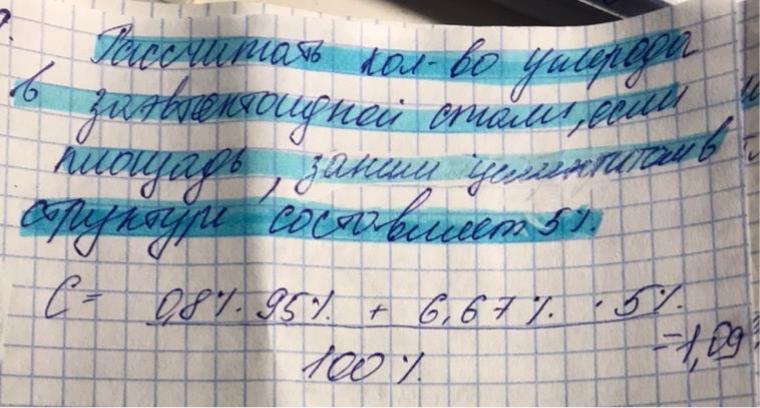 Рассчитать кол-во углерода
в заэвтектоидной стали, если
площадь, заним цементитом в
структуре составляет 5%.
C = 0,8% · 95% + 6,67% · 5%
100%
= 1,09